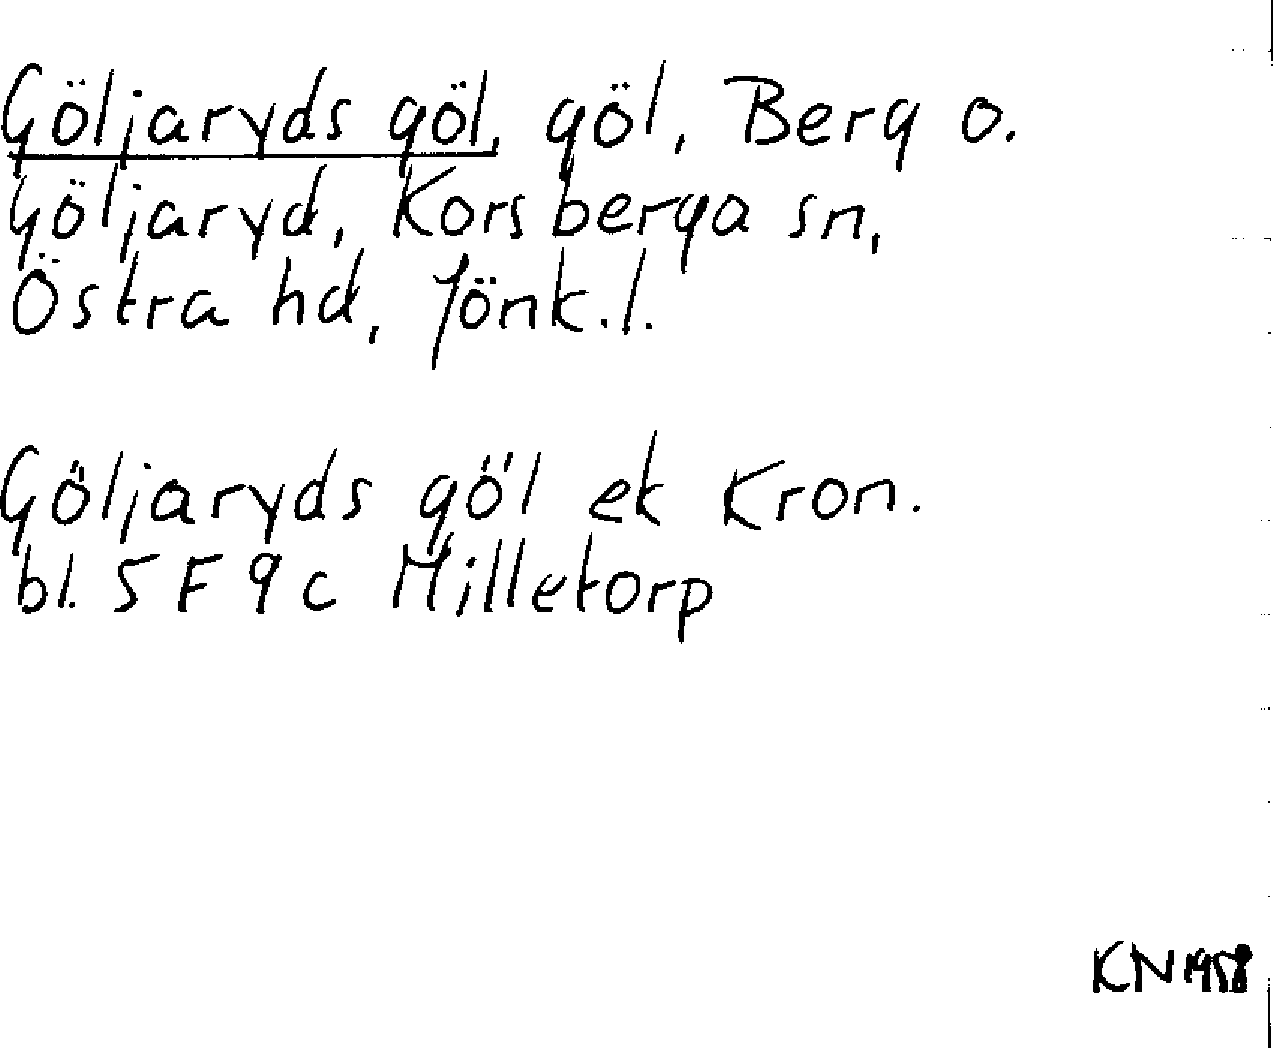 Göljaryds göl, göl, Berg o.
Göljaryd, Korsberga sn,
Östra hd, Jönk.l.
Göljaryds göl ek Kron.
bl. 5 F 9 c Milletorp
KN 1958